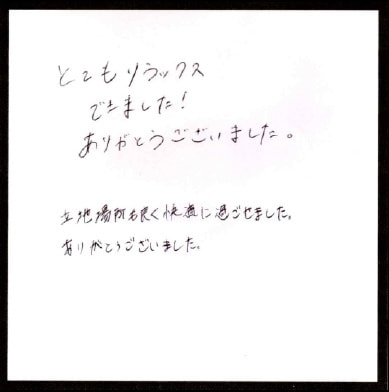 とてもリラックス
できました！
ありがとうございました。
立地場所も良く快適に過ごせました。
ありがとうございました。